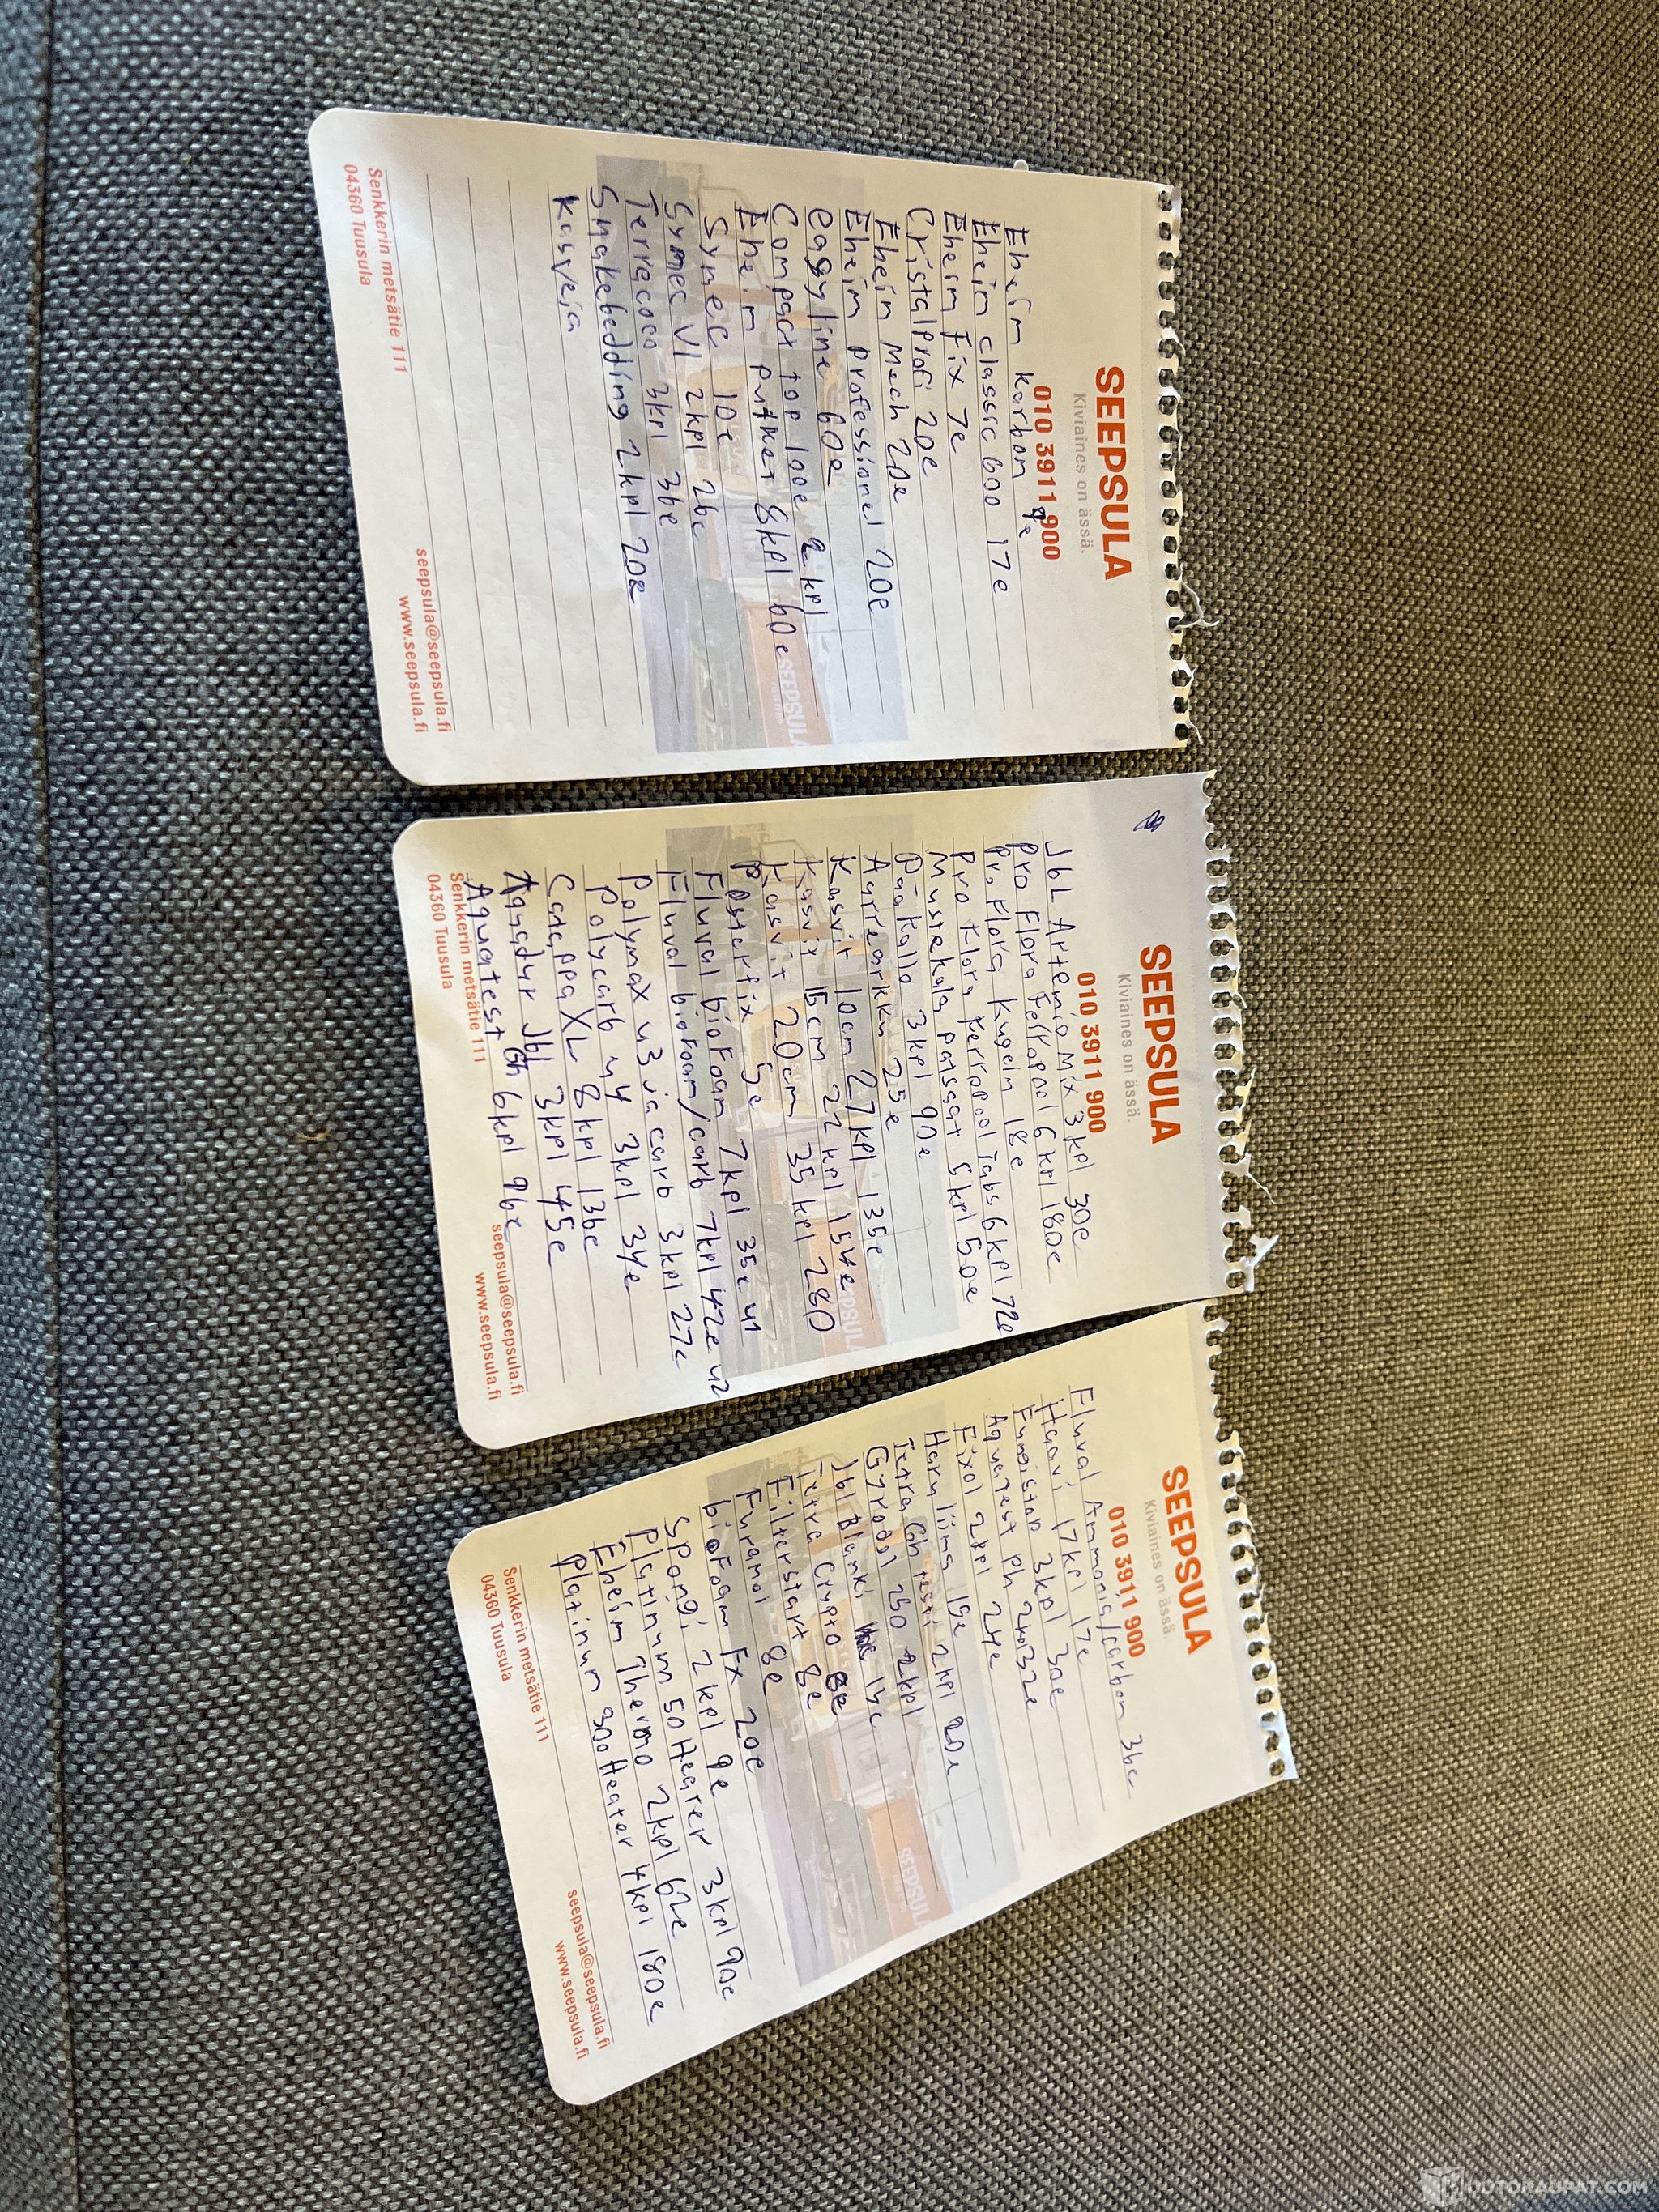 SEEPSULA
Kiviaines on ässä.
010 3911 900
Eheim karbon 9e
Eheim classic 600 17e
Eheim Fix 7e
Cristalprofi 20e
Eheim Mech 20e
Eheim professionel 20e
easyline 60e
Compact top 100e 2kpl
Eheim putket 8kpl 60e
Symec 10e
Symec VL 2kpl 26e
Terracoco 3kpl 36e
Snakebedding 2kpl 20e
Kasveja
Senkkerin metsätie 111
04360 Tuusula
seepsula@seepsula.fi
www.seepsula.fi
SEEPSULA
Kiviaines on ässä.
010 3911 900
Jbl Artemio Mix 3kpl 30e
Pro Flora Ferropol 6kpl 180e
Pro Flora Kugeln 18e
Pro Flora Ferropol Tabs 6kpl 72e
Mustekala patsaat 5kpl 50e
Pääkallo 3kpl 90e
Aarrearkku 25e
Kasvit 10cm 27kpl 135e
Kasvit 15cm 22kpl 154e
Kasvit 20cm 35kpl 280
Posterfix 5e
Fluval bioFoam 7kpl 35e u1
Fluval bioFoam/carb 7kpl 42e u2
Polymax u3 ja carb 3kpl 27e
Polycarb u4 3kpl 34e
Catappa XL 8kpl 136e
Aquadur Jbl 3kpl 45e
Aquatest Gh 6kpl 96e
Senkkerin metsätie 111
04360 Tuusula
seepsula@seepsula.fi
www.seepsula.fi
SEEPSULA
Kiviaines on ässä.
010 3911 900
Fluval Ammonia/carbon 36e
Haavi 17kpl 17e
3kpl 30e
Aquatest ph 32e
Fixol 2kpl 24e
Haru liima 15e
Tetra Gh testi 2kpl 20e
Gyrodol 250 2kpl
Jbl Blanki 14e
Tetra Crypto 8e
Filterstart 8e
Furamol 8e
bioFoam Fx 20e
SponGi 2kpl 9e
Platinum 50 Heater 3kpl 90e
Eheim Thermo 2kpl 62e
Platinum 300 Heater 4kpl 180e
Senkkerin metsätie 111
04360 Tuusula
seepsula@seepsula.fi
www.seepsula.fi
SEEPSULA
SEEPSULA
UUTOKAUPAT.COM